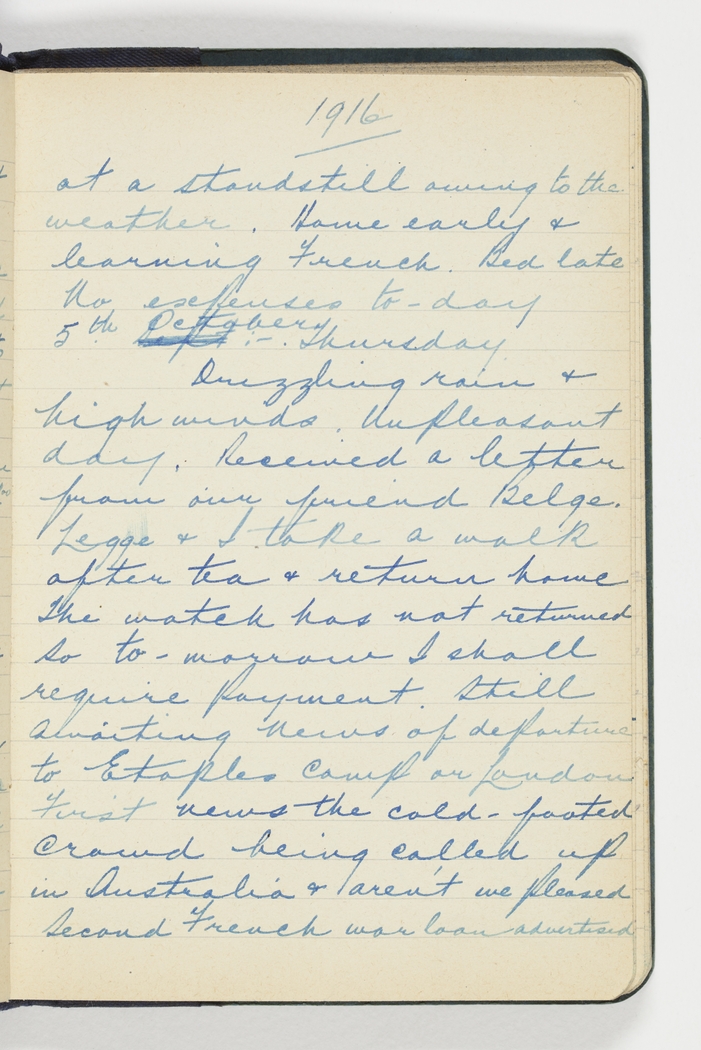 1916
at a standstill owing to the
weather. Home early &
learning French. Bed late
No expenses to-day
5th October :- Thursday
Drizzling rain &
high winds. Unpleasant
day. Received a letter
from our friend Belge.
Legge & I take a walk
after tea & return home
The watch has not returned
so to-morrow I shall
require payment. Still
awaiting news of departure
to Etaples Camp or London
First news the cold-footed
crowd being called up
in Australia & aren't we pleased
Second French war loan advertised